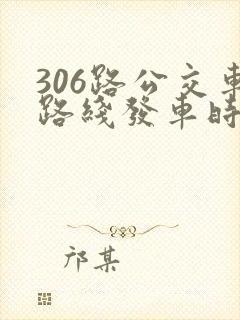 306路公交車
路綫發車時
邝某